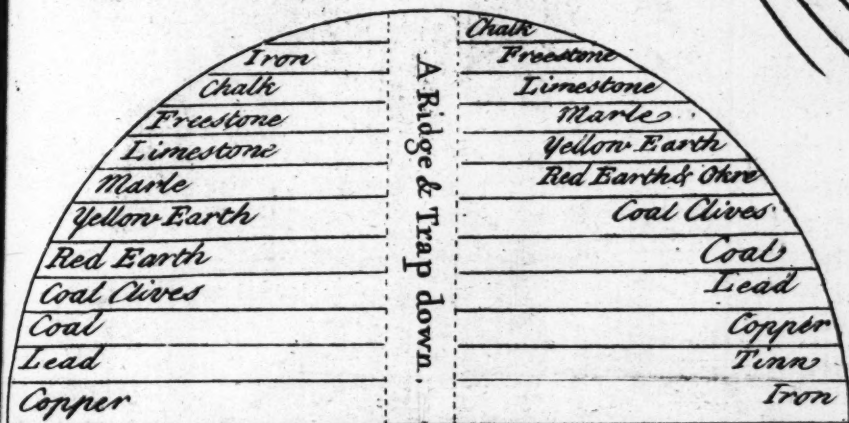 Iron
Chalk
Freestone
Limestone
Marle
Yellow Earth
Red Earth
Coal Clives
Coal
Lead
Copper
A Ridge & Trap down.
Chalk
Freestone
Limestone
Marle
Yellow Earth
Red Earth & Okre
Coal Clives
Coal
Lead
Copper
Tinn
Iron